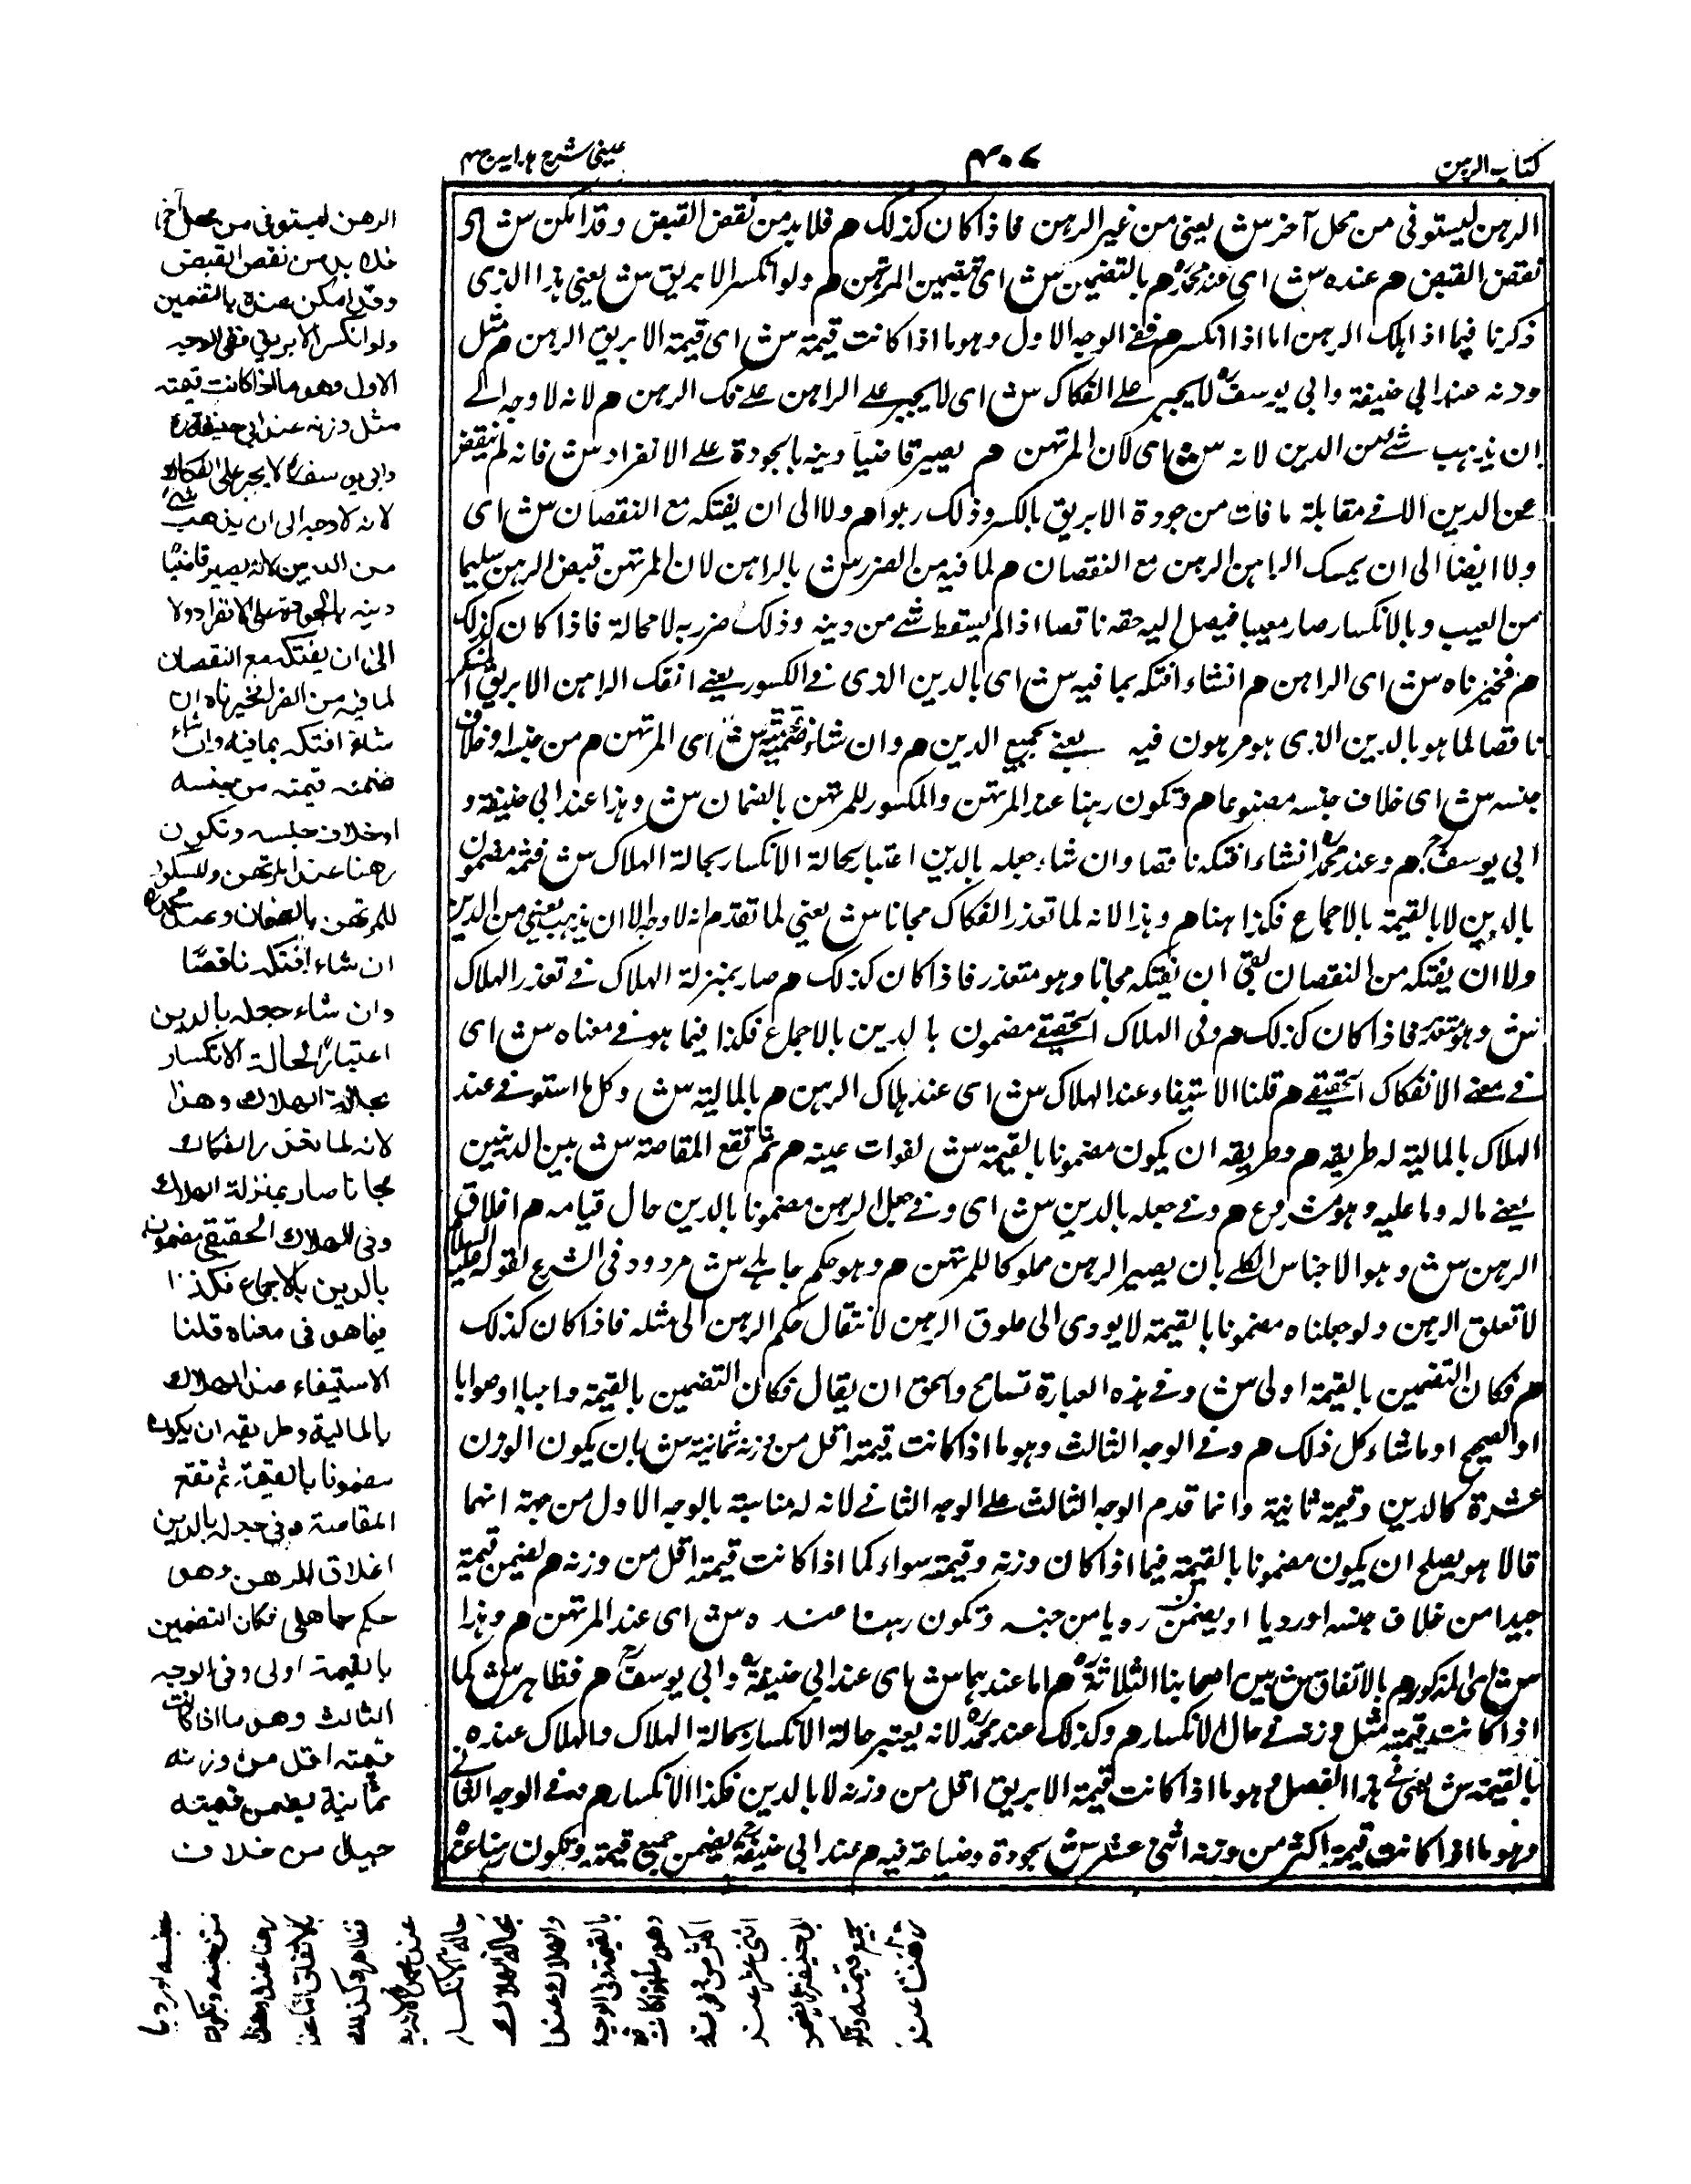 كتاب الرهن
٤٠٧
عينى شرح هدايه ج ٤
الرهن ليستوفى من محل آخر ش يعنى من غير الرهن فاذا كان كذلك م فلا بد من نقض القبض وقد امكن ش اى
نقض القبض م عنده ش اى عند محمد م بالتضمين ش اى بتضمين المرتهن م ولو انكسر الابريق ش يعنى هذا الذى
ذكرنا فيما اذا هلك الرهن اما اذا انكسر م ففى الوجه الاول وهو ما اذا كانت قيمته ش اى قيمة الابريق الرهن م مثل
وزنه عند ابى حنيفة وابى يوسف لا يجبر على الفكاك ش اى لا يجبر على الراهن على فك الرهن م لانه لا وجه الى
ان يذهب شئ من الدين لانه ش اى لان المرتهن م يصير قاضيا دينه بالجودة على الانفراد ش فانه لم ينقض
عن الدين الا فى مقابلة ما فات من جودة الابريق بالكسر وذلك ربوا م ولا الى ان يفتكه مع النقصان ش اى
ولا ايضا الى ان يمسك الراهن الرهن مع النقصان م لما فيه من الضرر ش بالراهن لان المرتهن قبض الرهن سليما
من العيب وبالانكسار صار معيبا فيصل اليه حقه ناقصا اذا لم يسقط شئ من دينه وذلك ضرر به لا محالة فاذا كان كذلك
م فخيرناه ش اى الراهن م ان شاء افتكه بما فيه ش اى بالدين الذى فى الكسور يعنى انفك الراهن الابريق المنكسر
ناقصا لما هو بالدين الذى هو مرهون فيه يعنى بجميع الدين م وان شاء ضمنه قيمته ش اى المرتهن م من جنسه او خلاف
جنسه ش اى خلاف جنسه مصنوعا م وتكون رهنا عند المرتهن والمكسور للمرتهن بالضمان ش وهذا عند ابى حنيفة و
ابى يوسف م وعند محمد ان شاء افتكه ناقصا وان شاء جعله بالدين اعتبارا بحالة الانكسار بحالة الهلاك ش فثمه مضمون
بالدين لا بالقيمة بالاجماع فكذا هنا م وهذا لانه لما تعذر الفكاك مجانا ش يعنى لما تقدم انه لا وجه الا ان يذهب يعنى من الدين
ولا ان يفتكه من النقصان بقى ان نفتكه مجانا وهو متعذر فاذا كان كذلك م صار بمنزلة الهلاك فى تعذر الهلاك
ش وهو متعذر فاذا كان كذلك م وفى الهلاك الحقيقى مضمون بالدين بالاجماع فكذا فيما هو فى معناه ش اى
فى معنى الانفكاك الحقيقى م قلنا الاستيفاء عند الهلاك ش اى عند هلاك الرهن م بالمالية ش وكل ما استوفى عند
الهلاك بالمالية له طريقه م وطريقه ان يكون مضمونا بالقيمة ش لفوات عينه م ثم تقع المقاصة ش بين الدينين
يعنى ماله وما عليه وهو مشروع م وفى جعله بالدين ش اى وفى جعل الرهن مضمونا بالدين حال قيامه م اغلاق
الرهن ش وهو الاحتباس الكلى بان يصير الرهن مملوكا للمرتهن م وهو حكم جاهلى ش مردود فى الشرع لقوله عليه السلام
لا تغلق الرهن ولو جعلناه مضمونا بالقيمة لا يودى الى غلوق الرهن لانتقال حكم الرهن الى مثله فاذا كان كذلك
م فكان التضمين بالقيمة اولى ش وفى هذه العبارة تسامح والحق ان يقال فكان التضمين بالقيمة واجبا او صوابا
او الصحيح او ما شاء كل ذلك م وفى الوجه الثالث وهو ما اذا كانت قيمته اقل من وزنه ثمانية ش بان يكون الوزن
عشرة كالدين وقيمته ثمانية وانما قدم الوجه الثالث على الوجه الثانى لانه له مناسبة بالوجه الاول من جهة انهما
قالا هو يصلح ان يكون مضمونا بالقيمة فيما اذا كان وزنه وقيمته سواء كما اذا كانت قيمته اقل من وزنه م يضمن قيمته
جيدا من خلاف جنسه او رديا او يضمن رديا من جنسه وتكون رهنا عنده ش اى عند المرتهن م وهذا
ش اى المذكور م بالاتفاق ش بين اصحابنا الثلاثة م اما عندهما ش اى عند ابى حنيفة وابى يوسف م فظاهر ش كما
اذا كانت قيمته مثل وزنه فى حال الانكسار م وكذلك عند محمد لانه يعتبر حالة الانكسار بحالة الهلاك والهلاك عنده
بالقيمة ش يعنى فى هذا الفصل وهو ما اذا كانت قيمة الابريق اقل من وزنه لا بالدين فكذا الانكسار م وفى الوجه الثانى
وهو ما اذا كانت قيمته اكثر من وزنه اثنى عشر ش بجودة وصياغة فيه م عند ابى حنيفة يضمن جميع قيمته وتكون رهنا عنده
الرهن ليستوفى من محل آخر
فلا بد من نقض القبض
وقد امكن عنده بالتضمين
ولو انكسر الابريق ففى الوجه
الاول وهو ما اذا كانت قيمته
مثل وزنه عند ابى حنيفة
وابى يوسف لا يجبر على الفكاك
لانه لا وجه الى ان يذهب شئ
من الدين لانه يصير قاضيًا
دينه بالجودة على الانفراد ولا
الى ان يفتكه مع النقصان
لما فيه من الضرر فخيرناه ان
شاء افتكه بما فيه وان شاء
ضمنه قيمته من جنسه
او خلاف جنسه وتكون
رهنا عند المرتهن والمكسور
للمرتهن بالضمان وعند محمد
ان شاء افتكه ناقصًا
وان شاء جعله بالدين
اعتبارًا لحالة الانكسار
بحالة الهلاك وهذا
لانه لما تعذر الفكاك
مجانا صار بمنزلة الهلاك
وفى الهلاك الحقيقى مضمون
بالدين بالاجماع فكذا
فيما هو فى معناه قلنا
الاستيفاء عند الهلاك
بالمالية وطريقه ان يكون
مضمونا بالقيمة ثم تقع
المقاصة وفى جعله بالدين
اغلاق الرهن وهو
حكم جاهلى فكان التضمين
بالقيمة اولى وفى الوجه
الثالث وهو ما اذا كانت
قيمته اقل من وزنه
ثمانية يضمن قيمته
جيدا من خلاف
جنسه او رديا
من جنسه وتكون
رهنا عنده وهذا
بالاتفاق اما عند
هما فظاهر وكذلك
عند محمد لانه يعتبر
حالة الانكسار
بحالة الهلاك
والهلاك عنده
بالقيمة وفى الوجه
وهو ما اذا كانت
اكثر من وزنه
اثنى عشر عند
ابى حنيفة يضمن
جميع قيمته وتكون
رهنا عنده